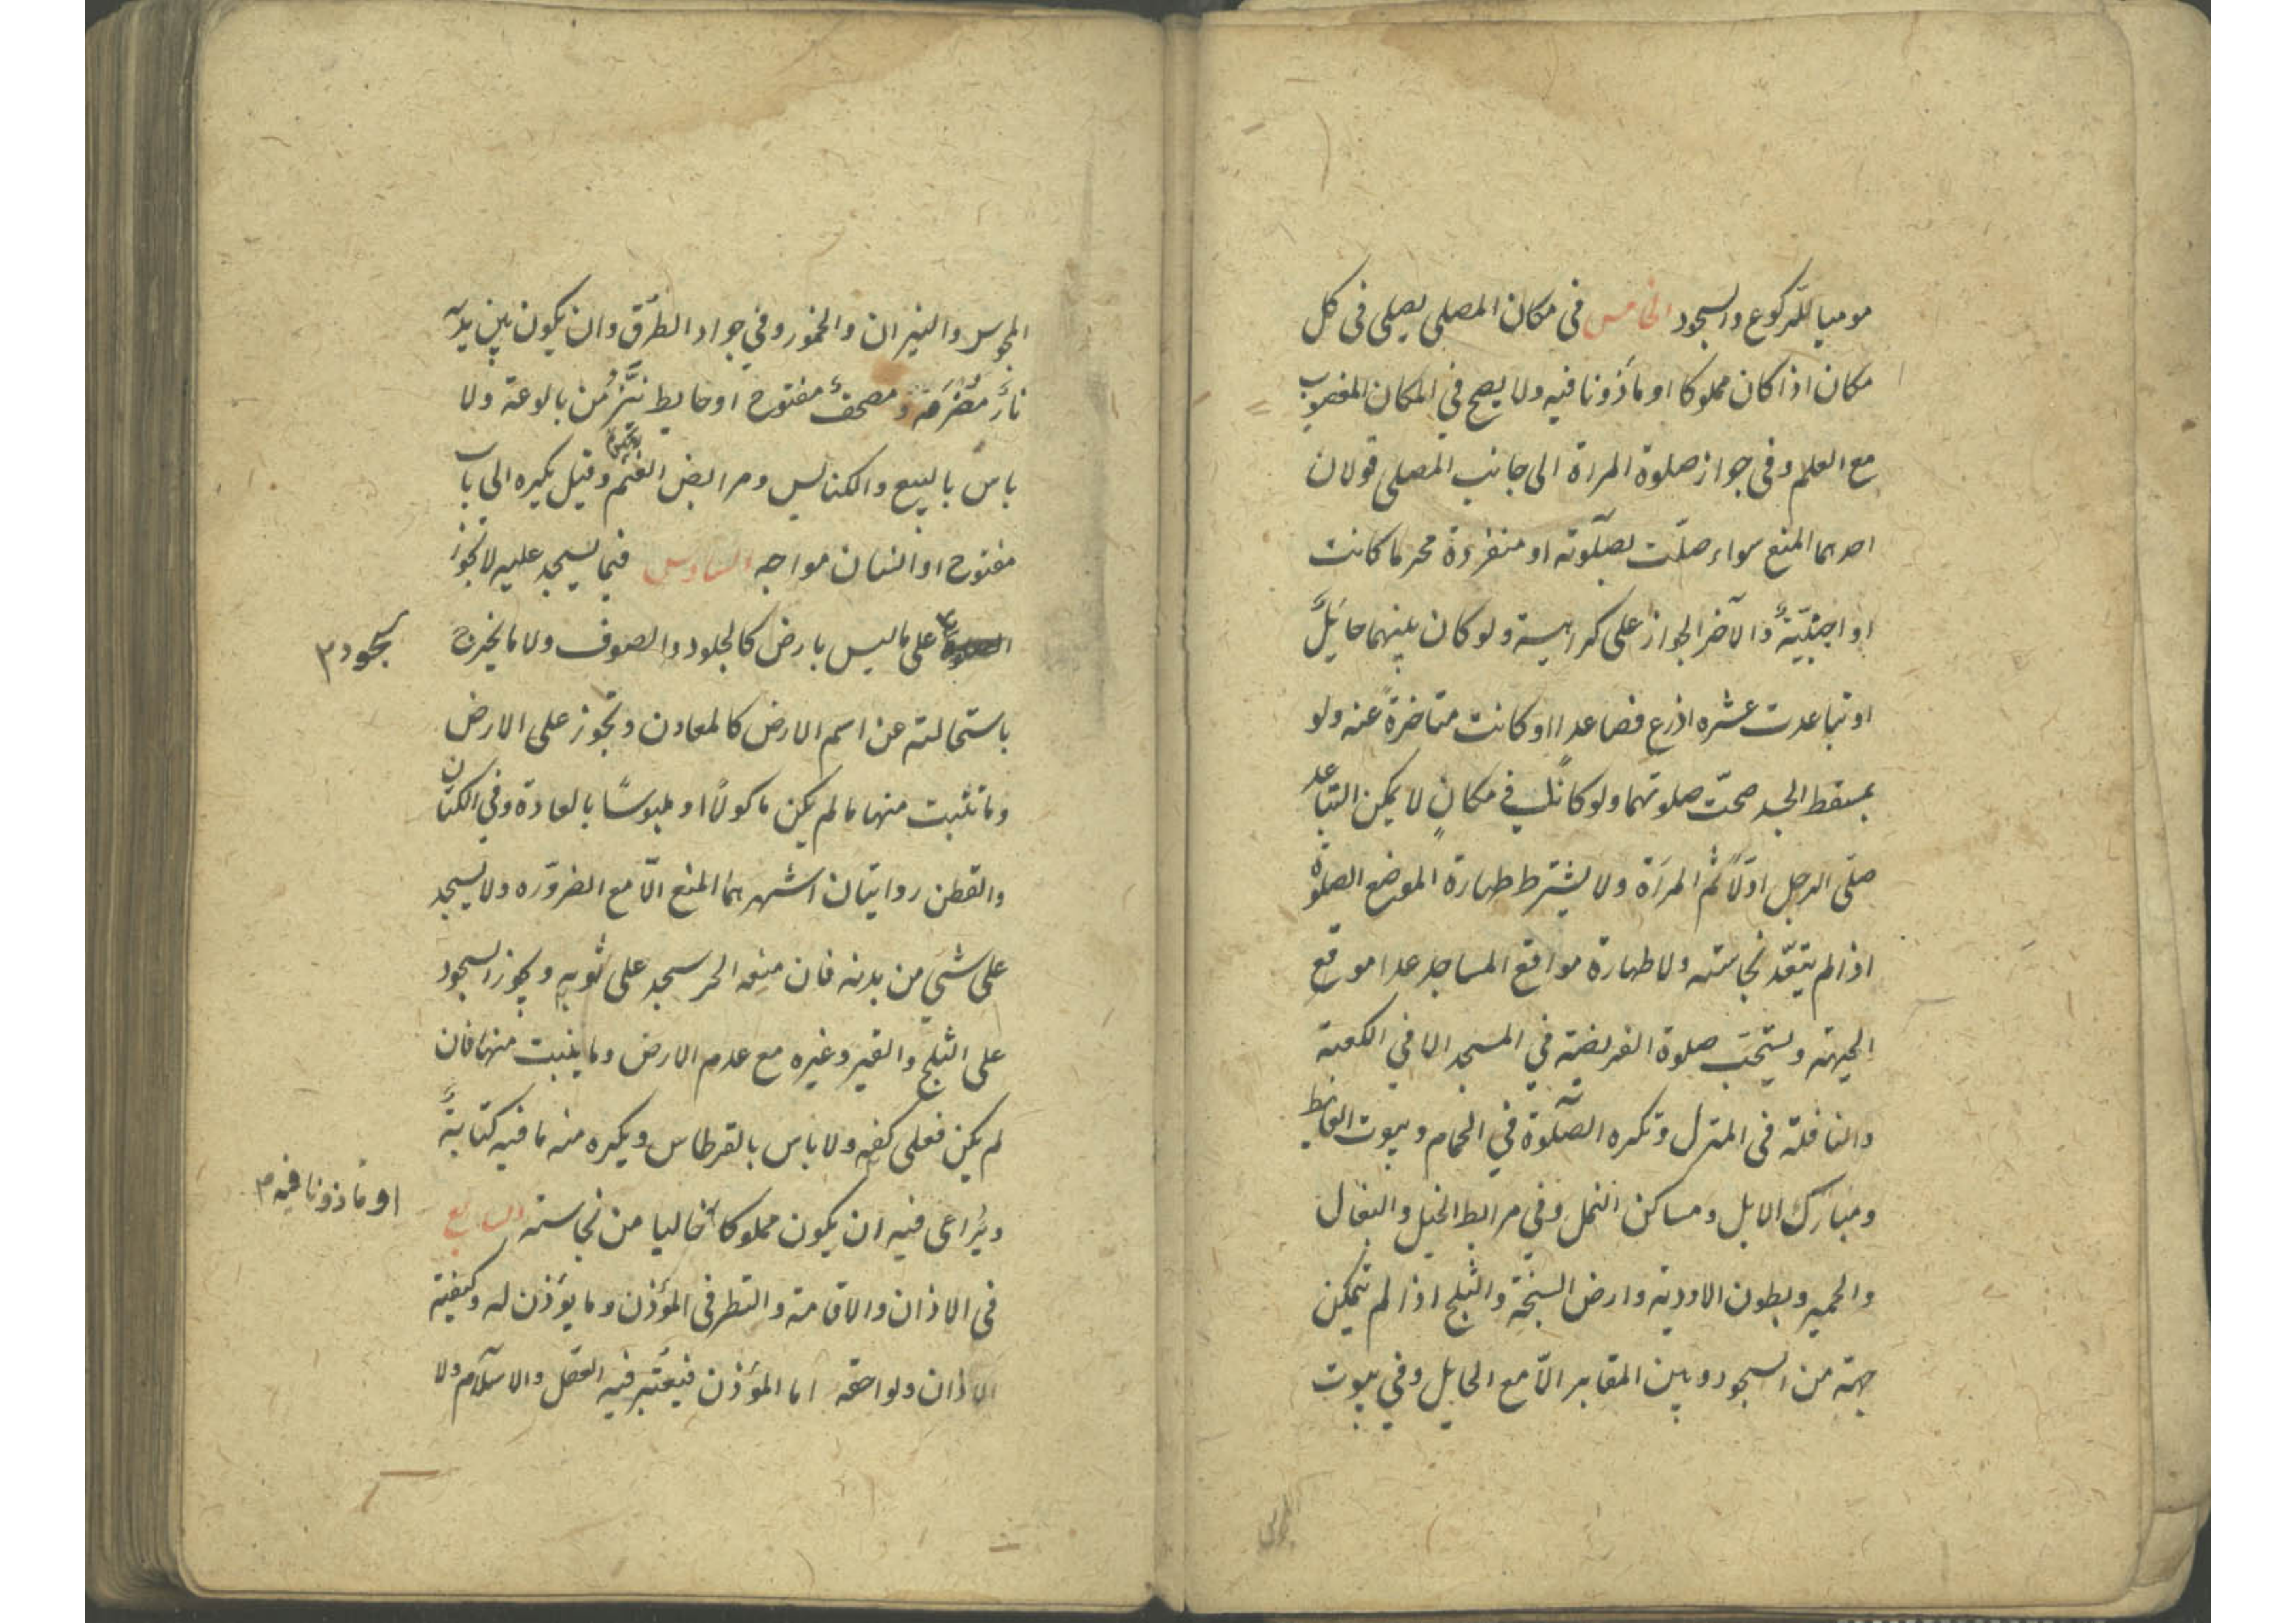 موميا للركوع والسجود الخامس فى مكان المصلى يصلى فى كل
مكان اذا كان مملوكا او مأذونا فيه ولا يصح في المكان المغصوب
مع العلم وفى جواز صلوة المراة الى جانب المصلى قولان
احدهما المنع سواء صلّت بصلوته او منفردة محرما كانت
او اجنبيّة والآخر الجواز على كراهية ولو كان بينهما حايل
او تباعدت عشره اذرع فصاعدا او كانت متاخرة عنه ولو
بمسقط الجسد صحّت صلوتهما ولو كانا في مكانٍ لا يمكن التباعد
صلّى الرجل اوّلاً ثم المرأة ولا يشترط طهارة الموضع الصلوة
اذا لم يتعدّ نجاسته ولا طهارة مواقع المساجد عدا موقع
الجبهة ويستحبّ صلوة الفريضة في المسجد الا في الكعبة
والنافلة فى المنزل وتكره الصّلوة في الحمام وبيوت الغايط
ومبارك الابل ومساكن النمل وفي مرابط الخيل والبغال
والحمير وبطون الاودية وارض السبخة والثلج اذا لم تتمكن
جبهة من السجود وبين المقابر الّا مع الحايل وفي بيوت
المجوس والنيران والخمور وفي جواد الطرق وان يكون بين يديه
نار مضرمة ومصحف مفتوح او حايط ينزّ من بالوعة ولا
باس بالبيع والكنايس ومرابض الغنم وقيل يكره الى باب
مفتوح او انسان مواجه السادس فيما يسجد عليه لا تجوز
على ما ليس بارض كالجلود والصوف ولا ما يخرج
سجود
باستحالته عن اسم الارض كالمعادن وتجوز على الارض
وما تنبت منها ما لم يكن ماكولاً او ملبوسًا بالعادة وفي الكتان
والقطن روايتان اشهرهما المنع الّا مع الضروره ولا يسجد
على شيء من بدنه فان منعه الحر سجد على ثوبه ويجوز السجود
على الثلج والقير وغيره مع عدم الارض وما ينبت منها فان
لم يكن فعلى كفه ولا باس بالقرطاس ويكره منه ما فيه كتابة
ويُراعى فيه ان يكون مملوكا خاليا من نجاسته السابع
او ماذونا فيه
فى الاذان والاقامة والنظر فى المؤذن وما يؤذن له وكيفية
الاذان ولواحقه اما المؤذن فيعتبر فيه العقل والاسلام ولا